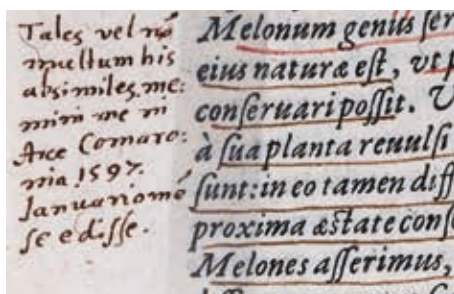 Tales vel nō
multum his
absimiles me:
mini me in
Arce Comaro:
nia 1597.
Januario mē
se edisse.
Melonum genus ſer
eius naturæ eſt, vt p
conſeruari poſſit. V
à ſua planta reuulſi
ſunt: in eo tamen diff
proxima æſtate conſ
Melones aſſerimus,